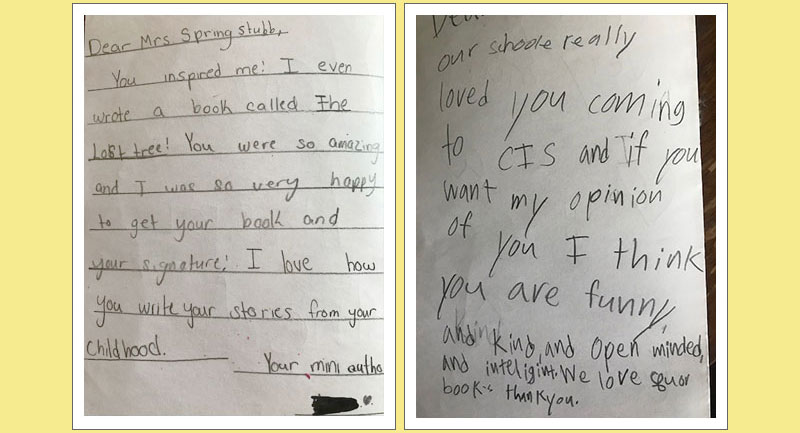 Dear Mrs Spring stubb,
You inspired me! I even
wrote a book called The
Lost tree! You were so amazing
and I was so very happy
to get your book and
your signature! I love how
you write your stories from your
childhood.
Your mini autho
Dear
our schoole really
loved you coming
to CIS and if you
want my opinion
of you I think
you are funny
and kind, and open minded,
and inteligint. We love
book's thankyou.